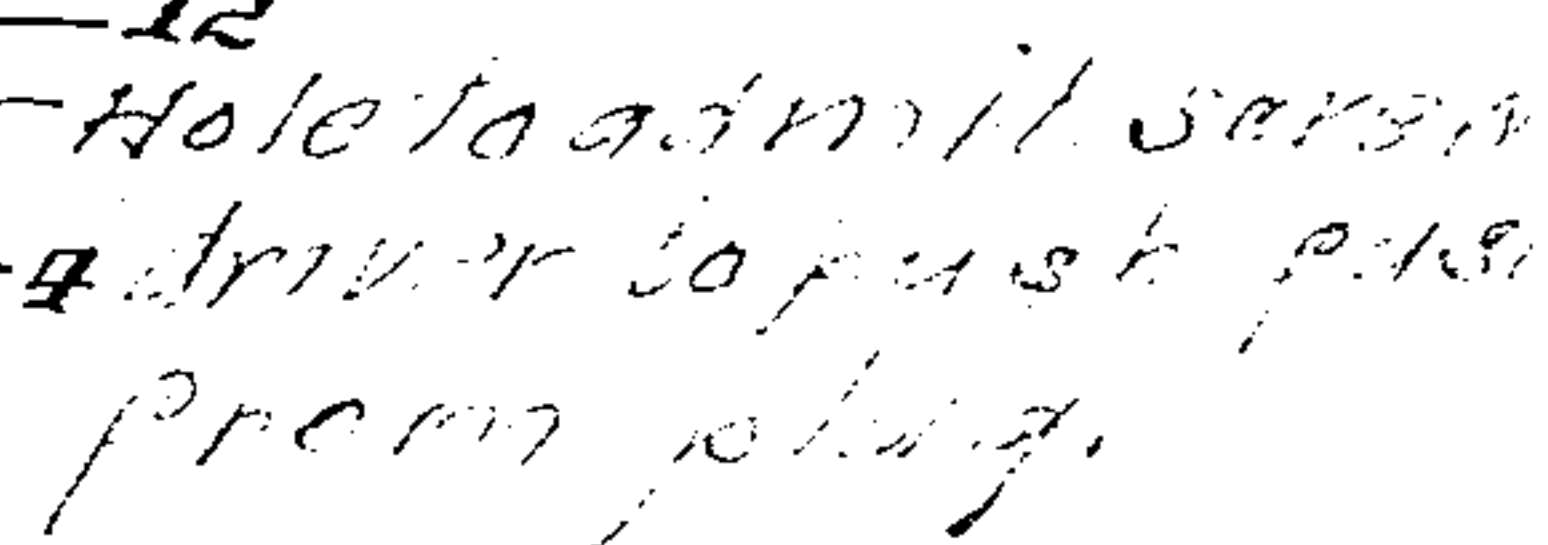 12
Hole to admit screw
4 driver to push
from plug.